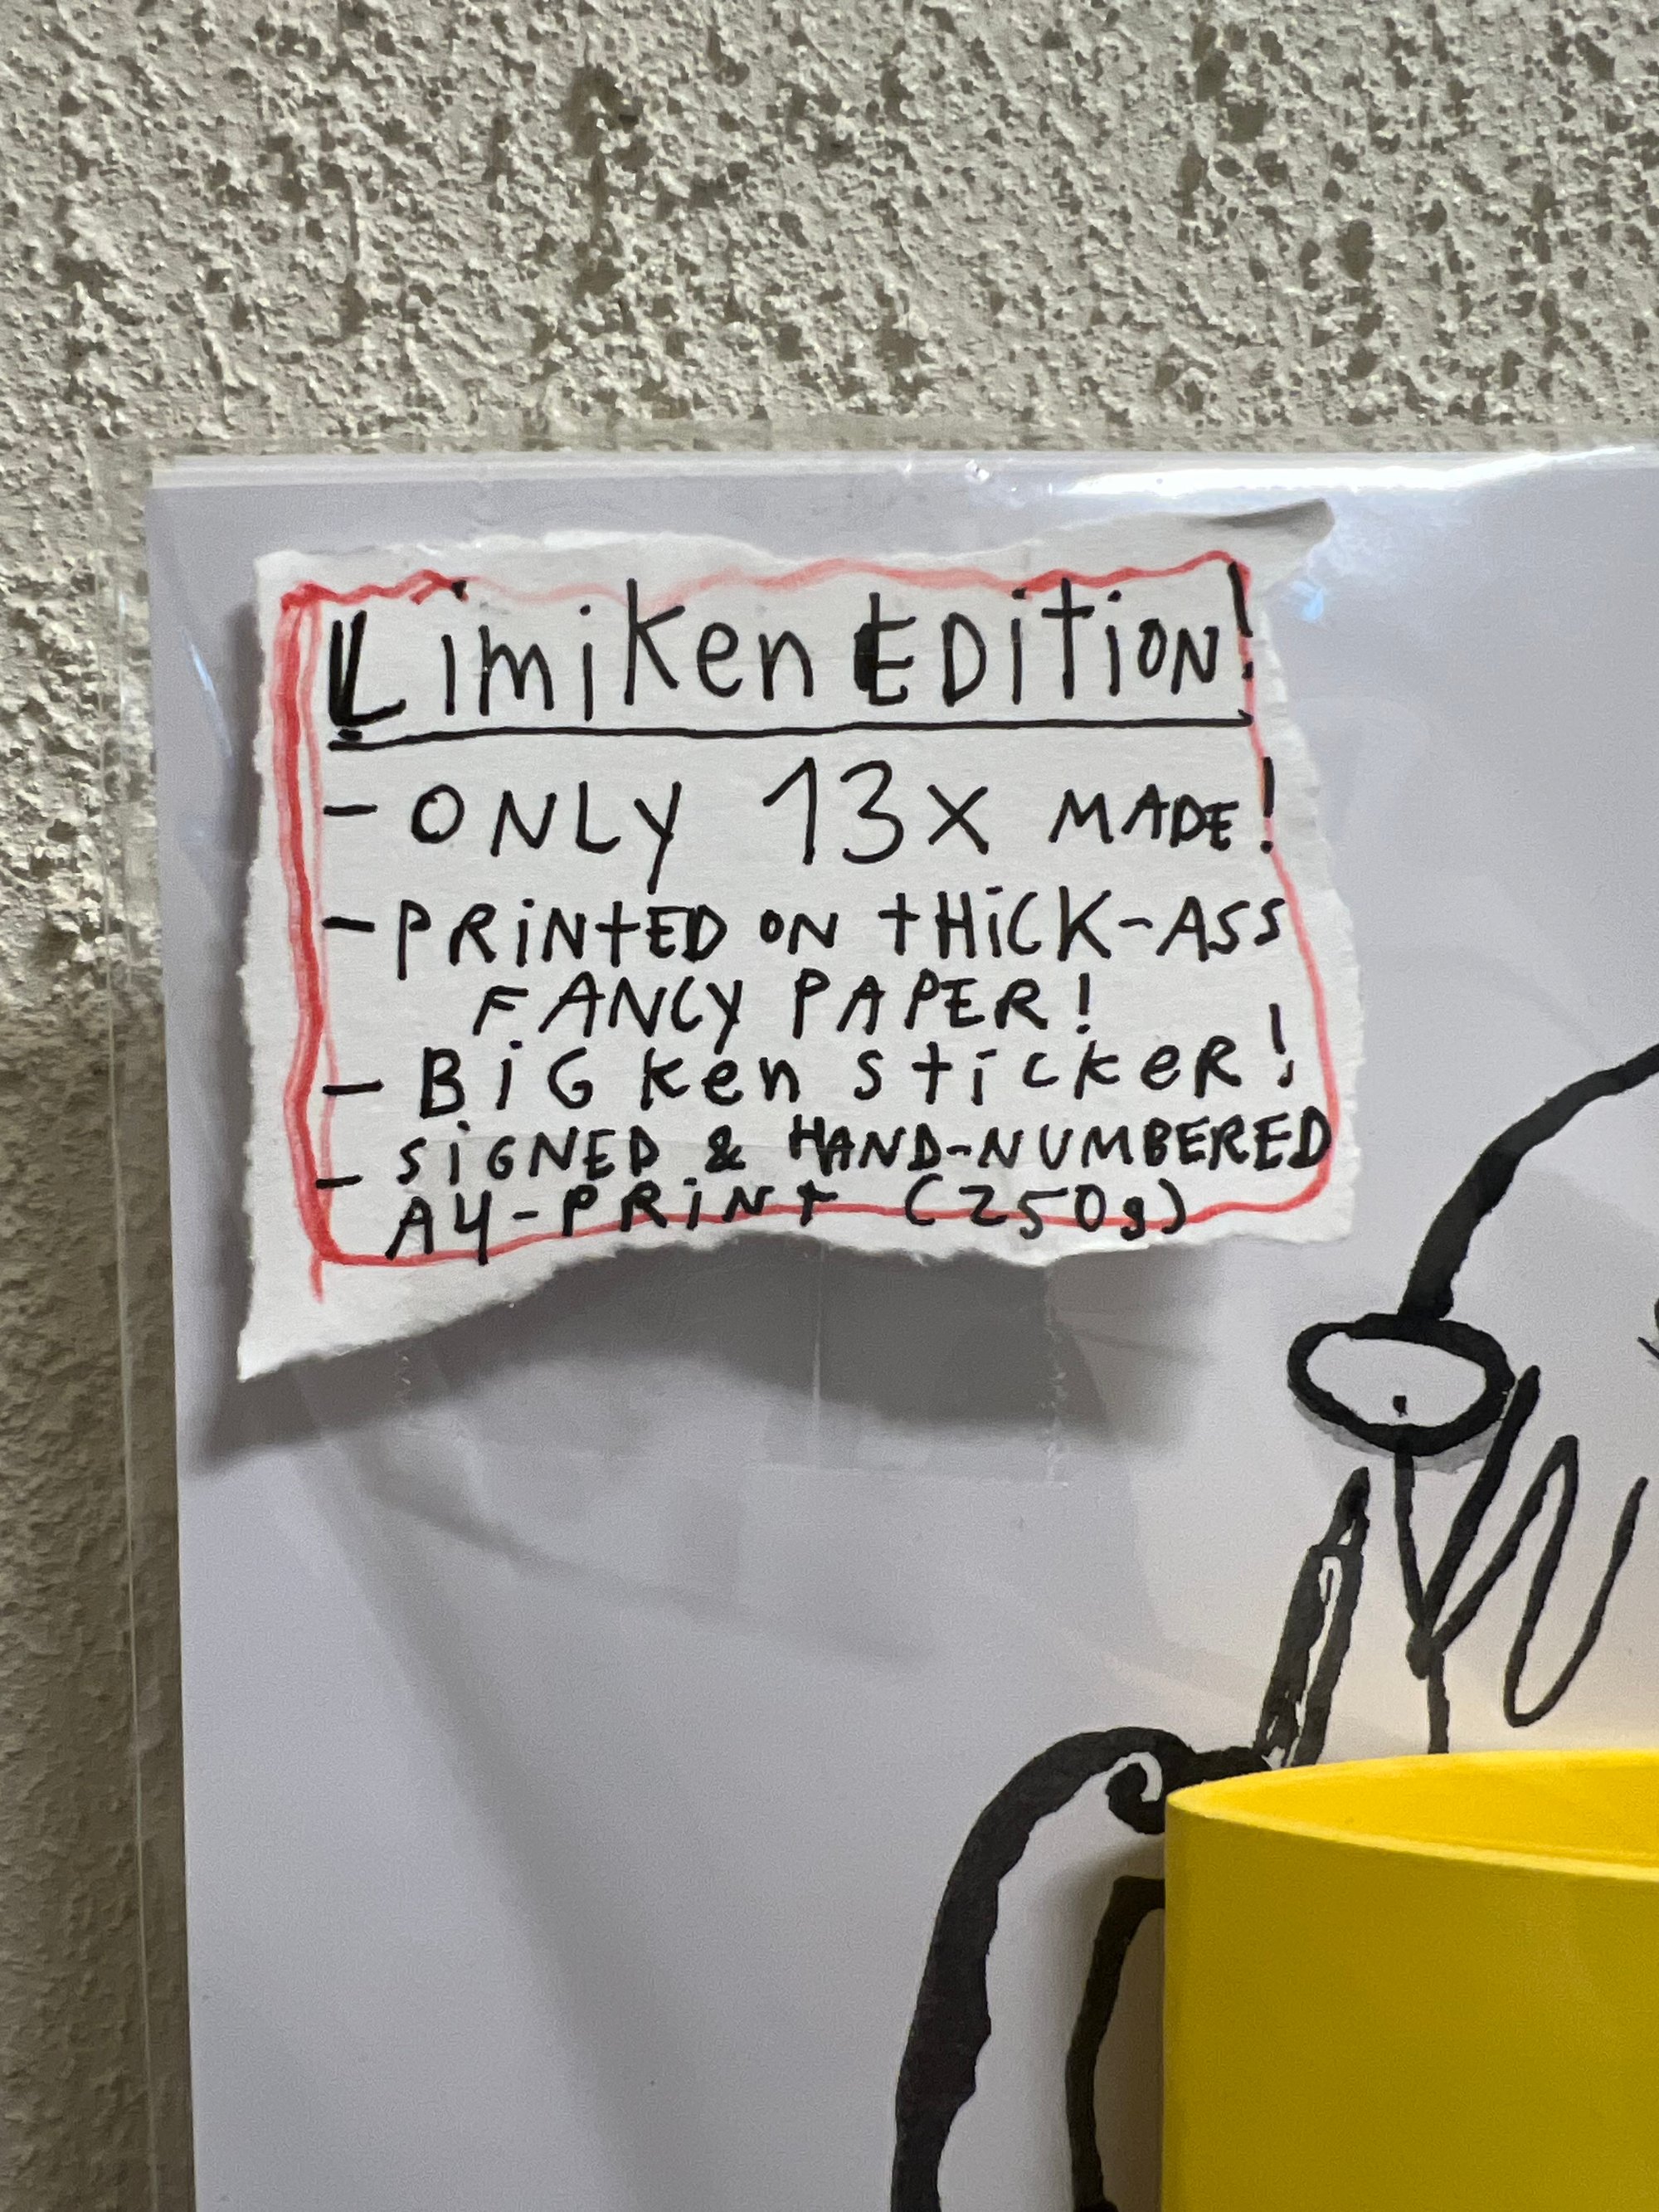 Limiken EDition!
- ONLY 13x MADE!
- PRiNtED ON tHiCK-ASS
FANCY PAPER!
- BiG ken sticker!
- SiGNED & HAND-NUMBERED
A4-PRiNt (250g)